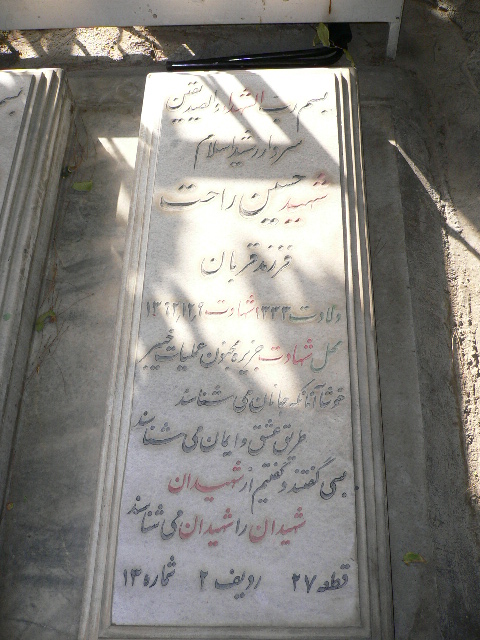 بسم رب الشهداء والصدیقین
سردار رشید اسلام
شهید حسین راحت
فرزند قربان
ولادت ۱۳۳۳ شهادت ۱۳۶۲٫۱۲٫۶
محل شهادت جزیره مجنون عملیات خیبر
خوشا آنانکه جانان می شناسند
طریق عشق و ایمان می شناسند
بسی گفتند و گفتیم از شهیدان
شهیدان را شهیدان می شناسند
قطعه ۲۷ ردیف ۲ شماره ۱۳